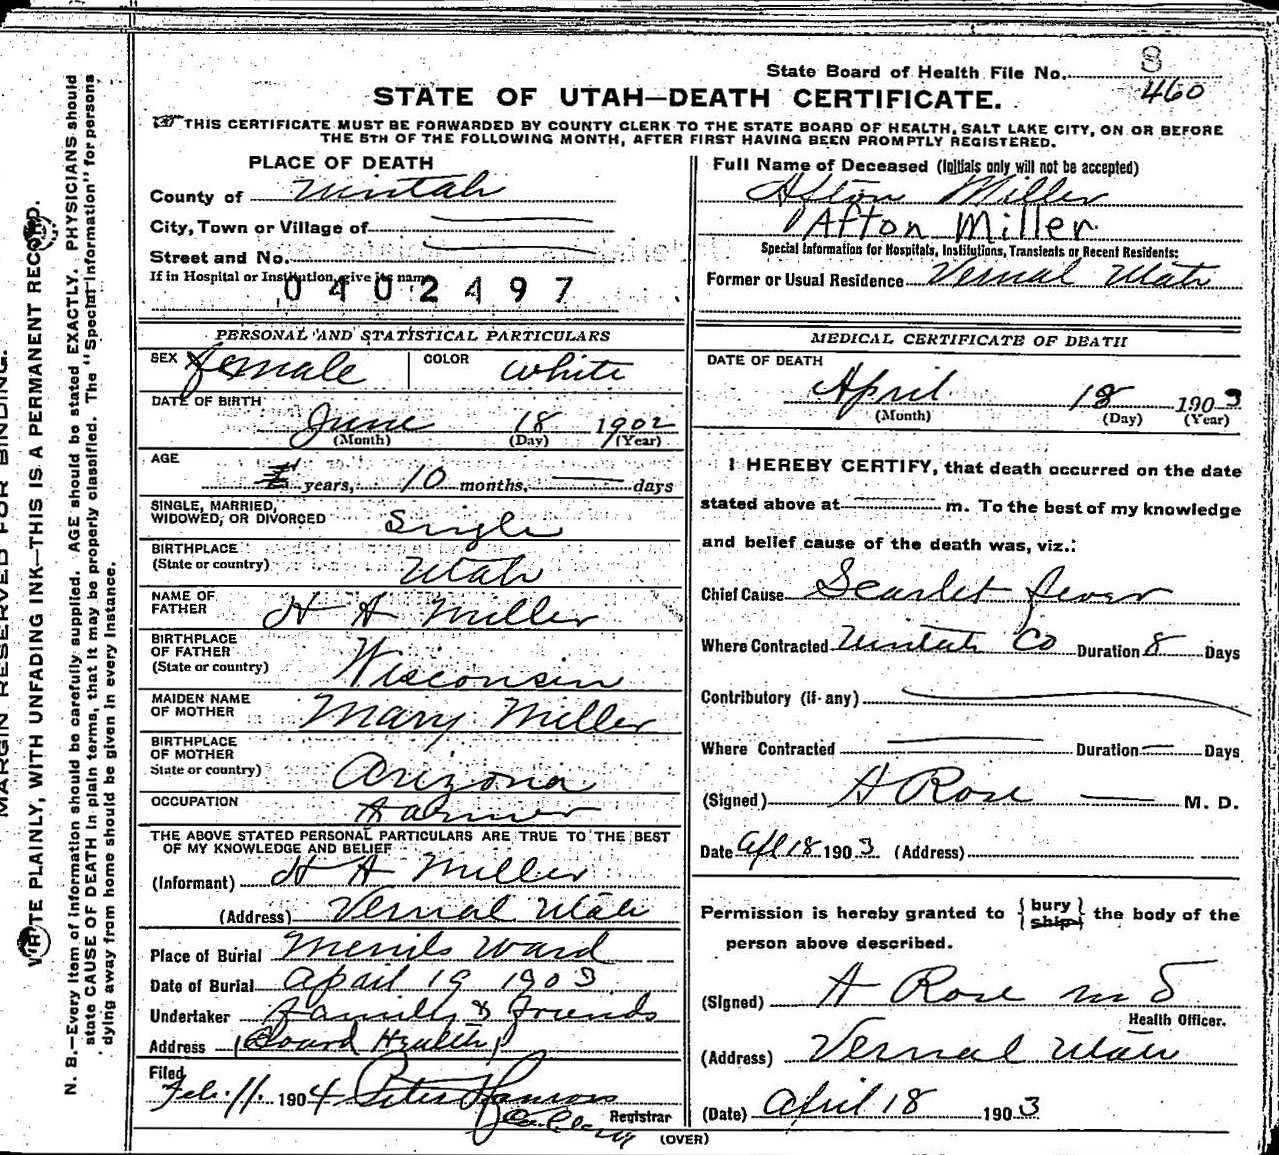 State Board of Health File No. 8
460
STATE OF UTAH—DEATH CERTIFICATE.
THIS CERTIFICATE MUST BE FORWARDED BY COUNTY CLERK TO THE STATE BOARD OF HEALTH, SALT LAKE CITY, ON OR BEFORE
THE 5TH OF THE FOLLOWING MONTH, AFTER FIRST HAVING BEEN PROMPTLY REGISTERED.
PLACE OF DEATH
County of Uintah
City, Town or Village of
Street and No.
If in Hospital or Institution, give its name
0402497
Full Name of Deceased (Initials only will not be accepted)
Afton Miller
Afton Miller
Special Information for Hospitals, Institutions, Transients or Recent Residents:
Former or Usual Residence Vernal Utah
PERSONAL AND STATISTICAL PARTICULARS
SEX female COLOR white
DATE OF BIRTH
June 18 1902
(Month) (Day) (Year)
AGE
years, 10 months, — days
SINGLE, MARRIED,
WIDOWED, OR DIVORCED Single
BIRTHPLACE
(State or country) Utah
NAME OF
FATHER H A Miller
BIRTHPLACE
OF FATHER
(State or country) Wisconsin
MAIDEN NAME
OF MOTHER Mary Miller
BIRTHPLACE
OF MOTHER
State or country) Arizona
OCCUPATION Farmer
THE ABOVE STATED PERSONAL PARTICULARS ARE TRUE TO THE BEST
OF MY KNOWLEDGE AND BELIEF
(Informant) H A Miller
(Address) Vernal Utah
Place of Burial Merrils Ward
Date of Burial April 19 1903
Undertaker Family & Friends
Address (Board Health)
Filed
Feb. 11. 1904 Peter Hanson
Registrar
Co. Clerk
MEDICAL CERTIFICATE OF DEATH
DATE OF DEATH
April 18 1903
(Month) (Day) (Year)
I HEREBY CERTIFY, that death occurred on the date
stated above at m. To the best of my knowledge
and belief cause of the death was, viz.:
Chief Cause Scarlet fever
Where Contracted Uintah Co Duration 8 Days
Contributory (if any)
Where Contracted — Duration — Days
(Signed) H Rose — M. D.
Date Apl 18 1903 (Address)
Permission is hereby granted to { bury ship } the body of the
person above described.
(Signed) H Rose M D
Health Officer.
(Address) Vernal Utah
(Date) April 18 1903
(OVER)
MARGIN RESERVED FOR BINDING.
WRITE PLAINLY, WITH UNFADING INK—THIS IS A PERMANENT RECORD.
N. B.—Every item of information should be carefully supplied. AGE should be stated EXACTLY. PHYSICIANS should
state CAUSE OF DEATH in plain terms, that it may be properly classified. The "Special Information" for persons
dying away from home should be given in every instance.